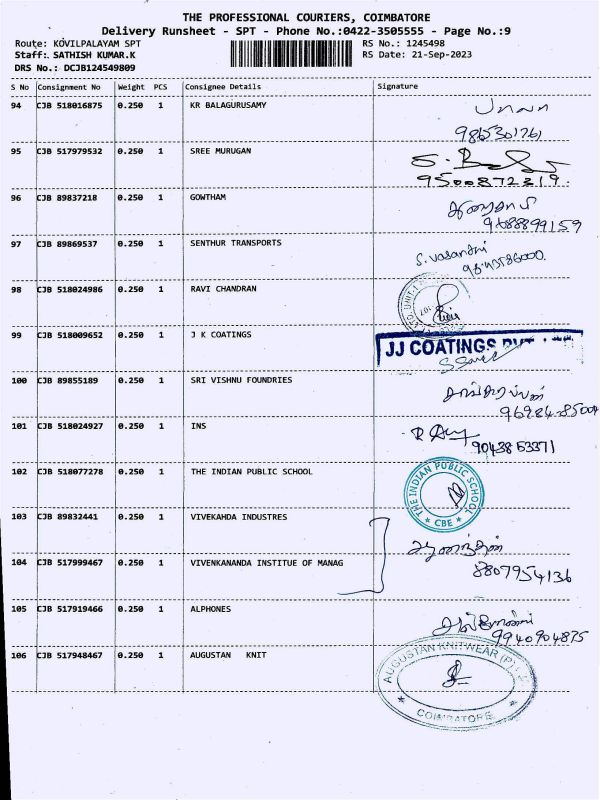 THE PROFESSIONAL COURIERS, COIMBATORE
Delivery Runsheet - SPT - Phone No.:0422-3505555 - Page No.:9
Route: KOVILPALAYAM SPT RS No.: 1245498
Staff: SATHISH KUMAR.K RS Date: 21-Sep-2023
DRS No.: DCJB124549809
S No Consignment No Weight PCS Consignee Details Signature
94 CJB 518016875 0.250 1 KR BALAGURUSAMY
9865301761
95 CJB 517979532 0.250 1 SREE MURUGAN
9500872319.
96 CJB 89837218 0.250 1 GOWTHAM
9688899159
97 CJB 89869537 0.250 1 SENTHUR TRANSPORTS S. Vasanthi
98 CJB 518024986 0.250 1 RAVI CHANDRAN
99 CJB 518009652 0.250 1 J K COATINGS JJ COATINGS
100 CJB 89855189 0.250 1 SRI VISHNU FOUNDRIES
96984-85004
101 CJB 518024927 0.250 1 INS
9043853371
102 CJB 518077278 0.250 1 THE INDIAN PUBLIC SCHOOL THE INDIAN PUBLIC SCHOOL CBE
103 CJB 89832441 0.250 1 VIVEKAHDA INDUSTRES
ஆனந்தன்
104 CJB 517999467 0.250 1 VIVENKANANDA INSTITUE OF MANAG
8807954136
105 CJB 517919466 0.250 1 ALPHONES
9940904875
106 CJB 517948467 0.250 1 AUGUSTAN KNIT AUGUSTAN KNITWEAR (P) COIMBATORE